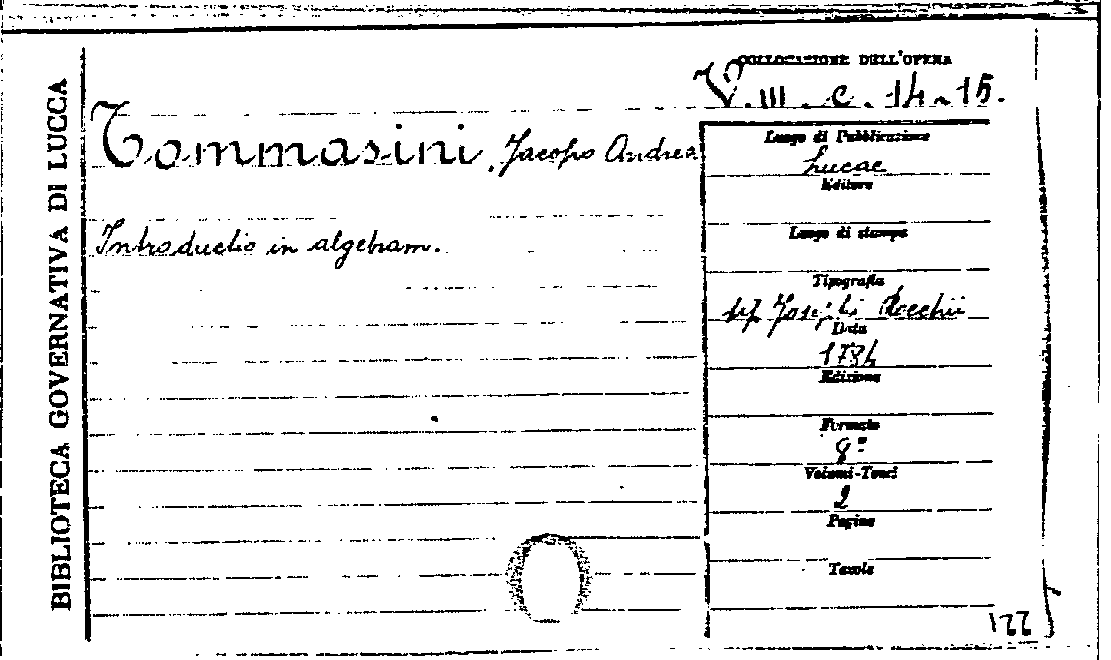 BIBLIOTECA GOVERNATIVA DI LUCCA
COLLOCAZIONE DELL'OPERA
V. III. c. 14-15.
Tommasini, Jacopo Andrea
Introductio in algebram.
Luogo di Pubblicazione
Lucae
Editore
Luogo di stampa
Tipografia
Josephi Rocchii
Data
1784
Edizione
Formato
8º
Volumi-Tomi
2
Pagine
Tavole
122